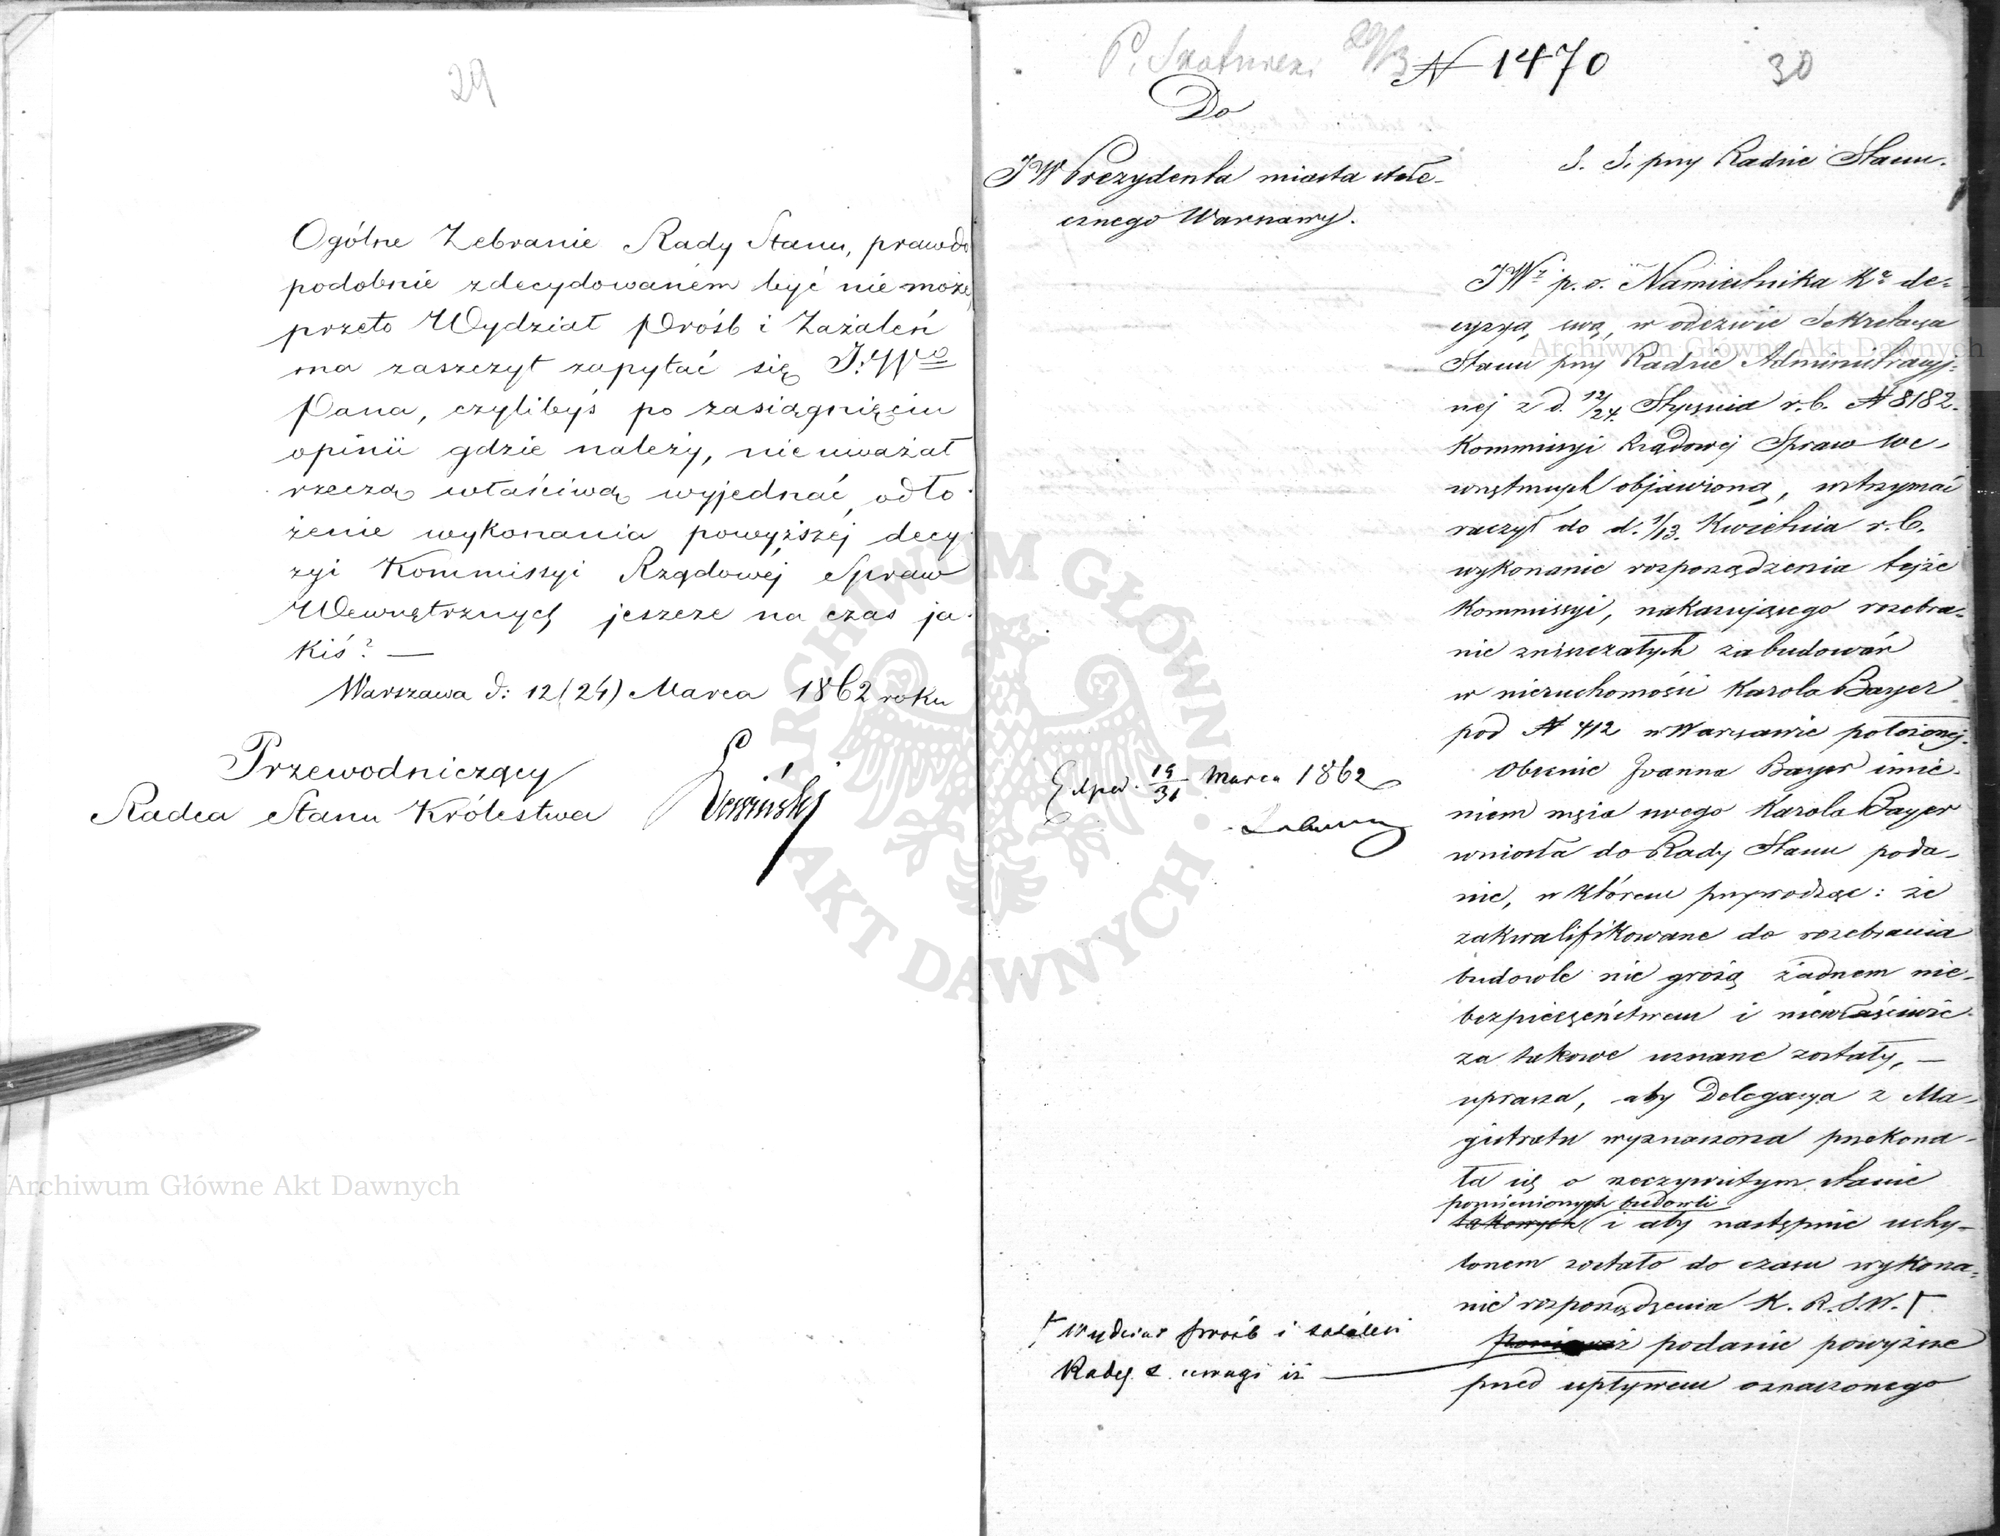 29
Ogólne Zebranie Rady Stanu, prawdo
podobnie zdecydowaném być nie może,
przeto Wydział Próśb i Zażaleń
ma zaszczyt zapytać się J:Wo
Pana, czylibyś po zasiągnięciu
opinii gdzie należy, nie uważał
rzeczą właściwą wyjednać odło
żenie wykonania powyższéj decy
zyi Kommissyi Rządowéj Spraw
Wewnętrznych jeszcze na czas ja
kiś? —
Warszawa d: 12 (24) Marca 1862 roku
Przewodniczący
Radca Stanu Królestwa
Archiwum Główne Akt Dawnych
P. 20/3 N 1470
30
Do
JW Prezydenta miasta stołe-
cznego Warszawy.
S. S. przy Radzie Stanu.
JWy p. o. Namiestnika Kr. de-
cyzyą swą, w odezwie Sekretarza
Stanu przy Radzie Administracyj-
nej z d. 12/24. Stycznia r. b. N 8182.
Kommissyi Rządowej Spraw We-
wnętrznych objawioną, wstrzymać
raczył do d. 1/13. Kwietnia r. b.
wykonanie rozporządzenia tejże
Kommissyi, nakazującego rozebra-
nie zniszczałych zabudowań
w nieruchomości Karola Bayer
pod N 412 w Warszawie położonej.
Obecnie Joanna Bayer imie-
niem męża swego Karola Bayer
wniosła do Rady Stanu poda-
nie, w którem przywodząc: że
zakwalifikowane do rozebrania
budowle nie grożą żadnem nie-
bezpieczeństwem i niewłaściwie
za takowe uznane zostały, —
uprasza, aby Delegacya z Ma-
gistratu wyznaczona przekona-
ła się o rzeczywistym stanie
pomienionych budowli
takowych i aby następnie uchy-
lonem zostało do czasu wykona-
nie rozporządzenia K. R. S. W. Γ
Ponieważ podanie powyższe
przed upływem oznaczonego
Exped. 19/31 Marca 1862
Γ Wydział Próśb i Zażaleń
Rady z uwagi iż —
Archiwum Główne Akt Dawnych
ARCHIWUM GŁÓWNE AKT DAWNYCH